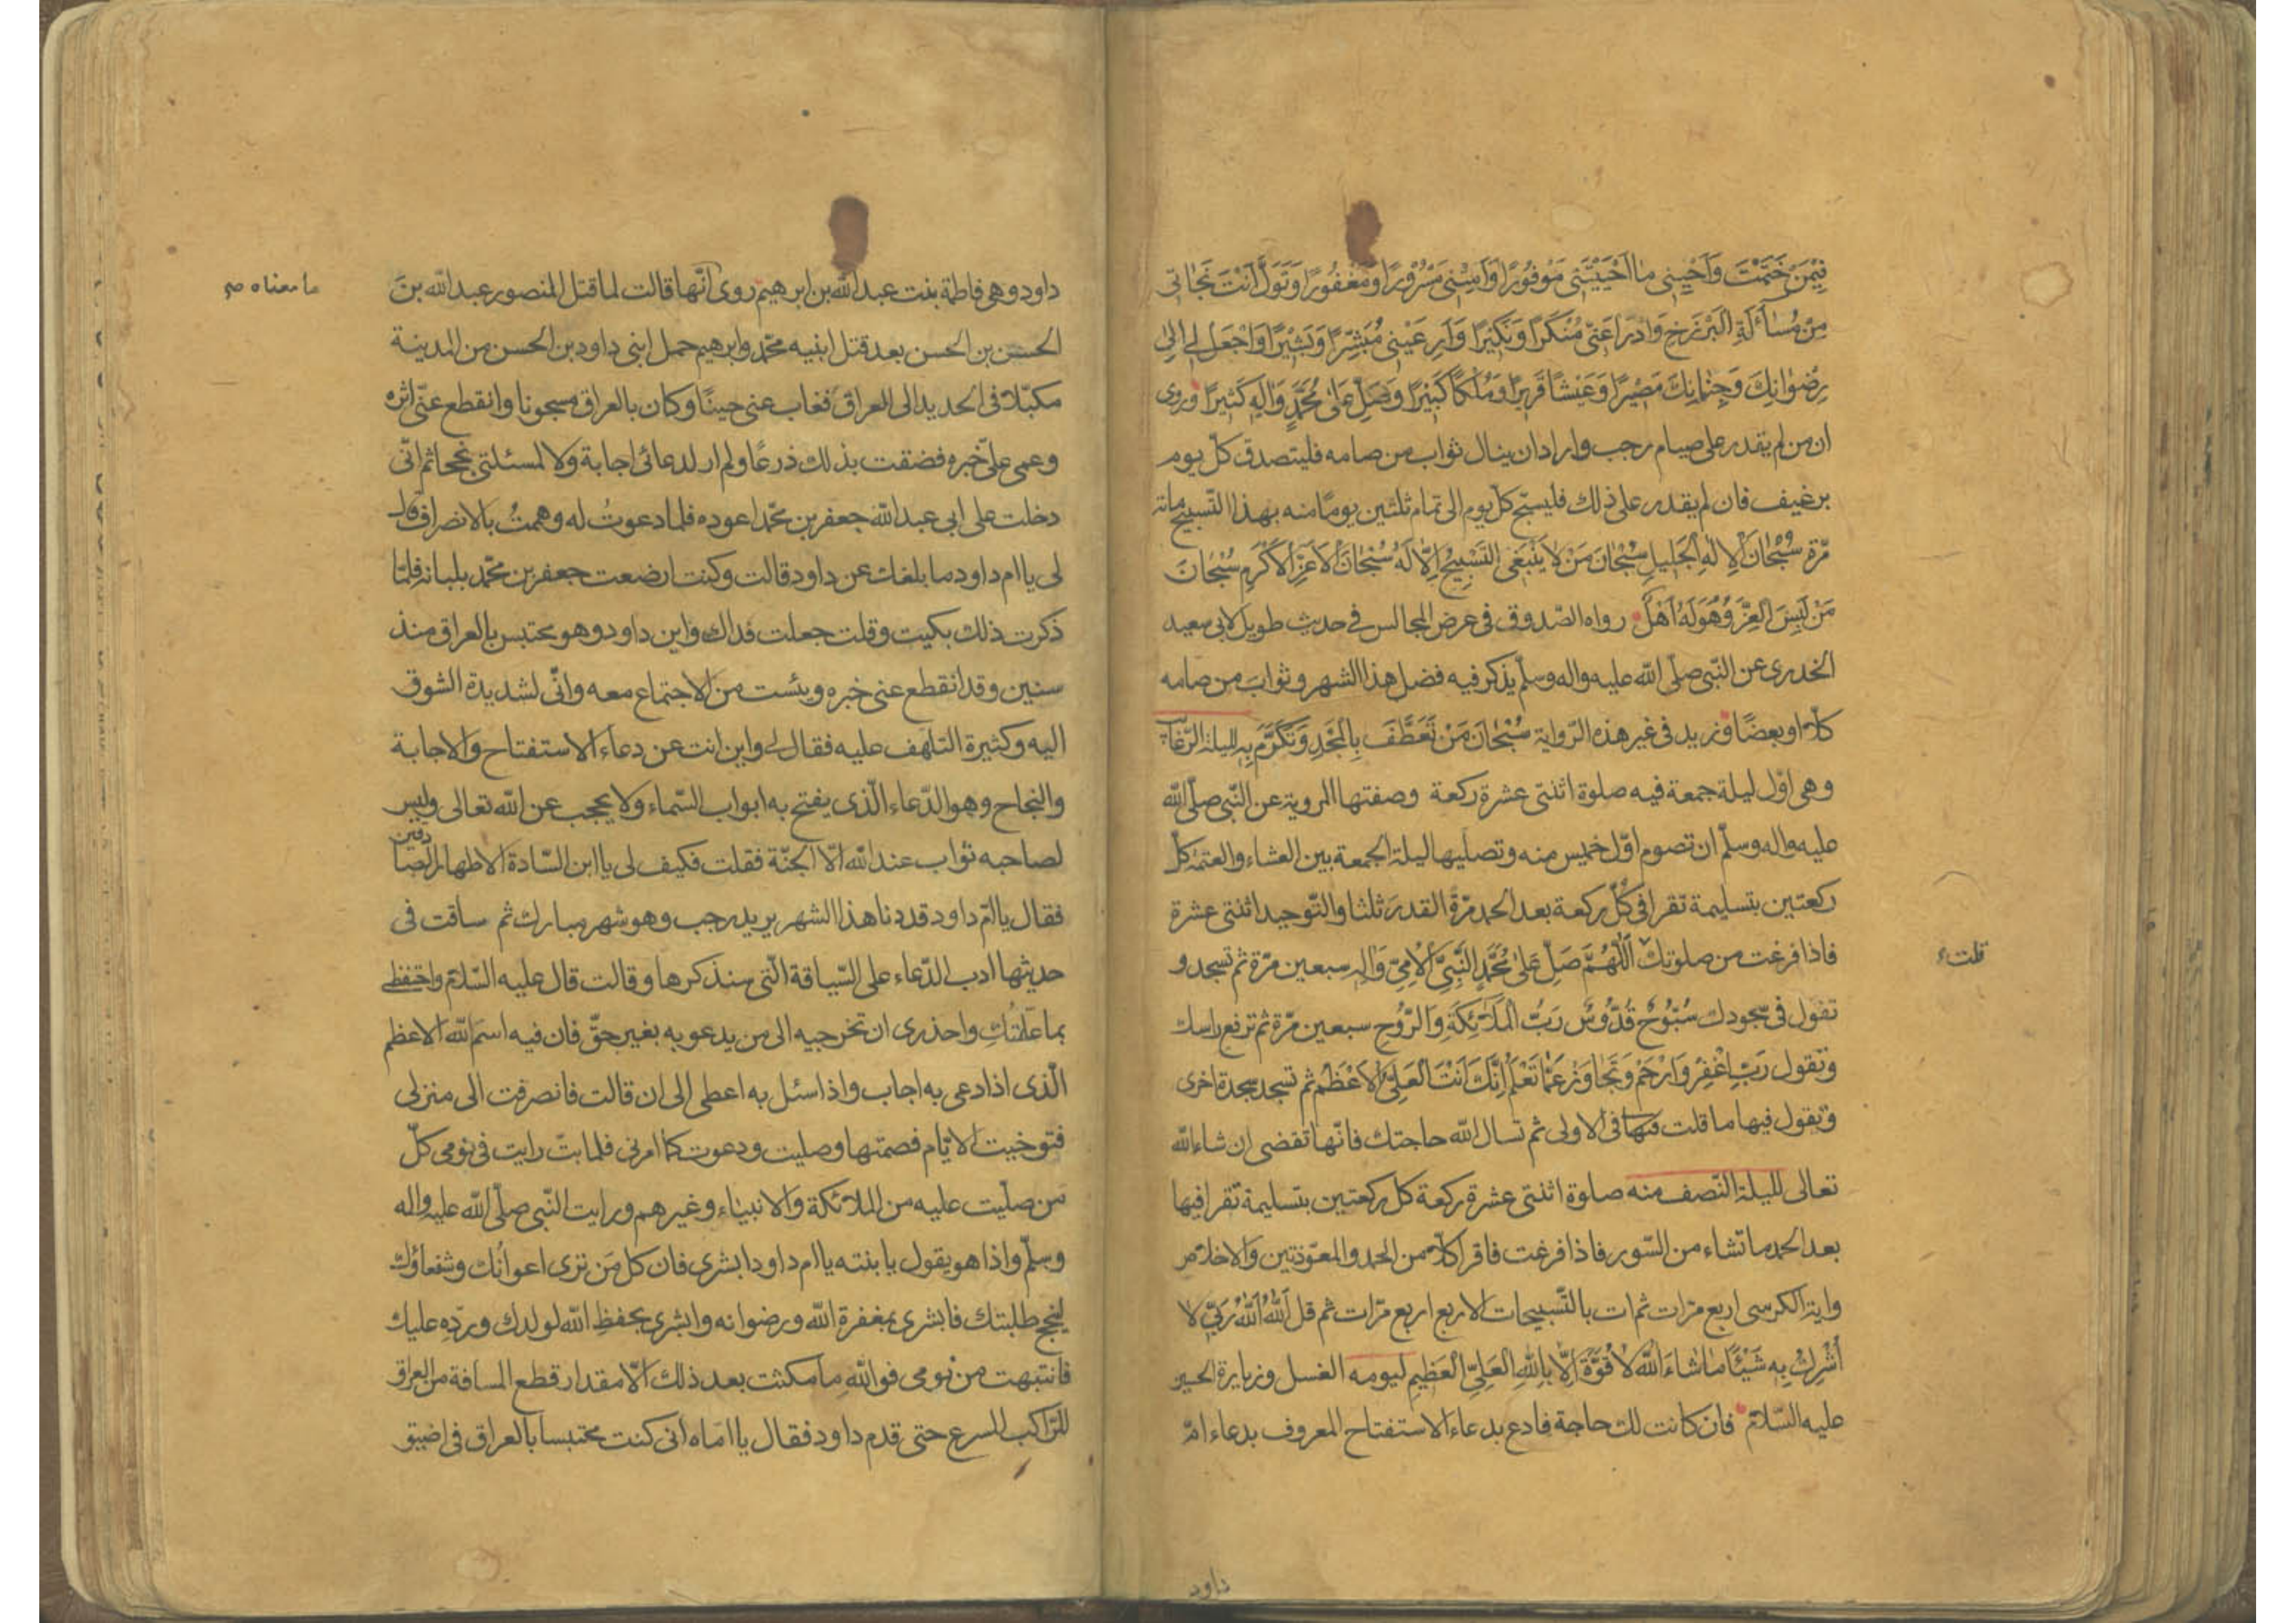 فِيمَنْ خَتَمْتَ وَاَحْيِنِى مٰا اَحْيَيْتَنِى مَوْفُورًا وَاَمِتْنِى مَسْرُورًا وَمَغْفُورًا وَتَوَلَّ اَنْتَ نَجٰاتِى
مِنْ مُسٰاءَلَةِ الْبَرْزَخِ وَادْرَأ عَنّى مُنْكَرًا وَنَكِيْرًا وَاَرِ عَيْنِى مُبَشِّرًا وَبَشِيْرًا وَاجْعَل لِى اِلىٰ
رِضْوٰانِكَ وَجِنٰانِكَ مَصِيْرًا وَعَيْشًا قَرِيرًا وَمُلْكًا كَبِيْرًا وَصَلِّ عَلىٰ مُحَمَّدٍ وَاٰلِهِ كَثِيرًا وروى
ان من لم يقدر على صيام رجب واراد ان ينال ثواب من صامه فليتصدق كلّ يوم
برغيف فان لم يقدر على ذلك فليسبّح كلّ يوم الى تمام ثلثين يومًا منه بهذا التّسبيح مائة
مرّة سُبْحٰانَ الْاِلٰهِ الْجَلِيلِ سُبْحٰانَ مَنْ لٰا يَنْبَغِى التَّسْبِيْحُ اِلّٰا لَهُ سُبْحٰانَ الْاَعَزِّ الْاَكْرَمِ سُبْحٰانَ
مَنْ لَبِسَ الْعِزَّ وَهُوَ لَهُ اَهْلٌ رواه الصّدوق فى عرض المجالس فى حديث طويل لابى سعيد
الخدرى عن النّبى صلّى الله عليه واله وسلّم يذكر فيه فضل هذا الشهر وثواب من صامه
كلّا او بعضًا وزيد فى غير هذه الرّواية سُبْحٰانَ مَنْ تَعَطَّفَ بِالْمَجْدِ وَتَكَرَّمَ بِهِ لليلة الرّغائب
وهى اوّل ليلة جمعة فيه صلوة اثنتى عشرة ركعة وصفتها المروية عن النّبى صلّى الله
عليه واله وسلّم ان تصوم اوّل خميس منه وتصليها ليلة الجمعة بين العشاء والعتمة كلّ
ركعتين بتسليمة تقرا فى كلّ ركعة بعد الحمد مرّة القدر ثلثا والتّوحيد اثنتى عشرة
فاذا فرغت من صلوتك اَللّٰهُمَّ صَلِّ عَلىٰ مُحَمَّدٍ النَّبِىِّ الْاُمِّىِّ وَاٰلِهِ سبعين مرّة ثم تسجد و
قلت
تقول فى سجودك سُبُّوحٌ قُدُّوسٌ رَبُّ الْمَلٰائِكَةِ وَالرُّوحِ سبعين مرّة ثم ترفع راسك
وتقول رَبِّ اغْفِرْ وَارْحَمْ وَتَجٰاوَزْ عَمّٰا تَعْلَمُ اِنَّكَ اَنْتَ الْعَلِىُّ الْاَعْظَمُ ثم تسجد سجدة اخرى
وتقول فيها ما قلت فيها فى الاولى ثم تسال الله حاجتك فانّها تقضى ان شاء الله
تعالى لليلة النّصف منه صلوة اثنتى عشرة ركعة كل ركعتين بتسليمة تقرا فيها
بعد الحمد ما تشاء من السّور فاذا فرغت فاقرا كلّا من الحمد والمعوّذتين والاخلاص
واية الكرسى اربع مرّات ثم ات بالتّسبيحات الاربع اربع مرّات ثم قل اَللهُ اَللهُ رَبّى لٰا
اُشْرِكُ بِهِ شَيْئًا مٰا شٰاءَ اللهُ لٰا قُوَّةَ اِلّٰا بِاللهِ الْعَلِىِّ الْعَظِيمِ ليومه الغسل وزيارة الحسين
عليه السّلام فان كانت لك حاجة فادع بدعاء الاستفتاح المعروف بدعاء امّ
داود
داود وهى فاطمة بنت عبد الله بن ابرهيم روى انّها قالت لما قتل المنصور عبد الله بن
ما معناه
الحسن بن الحسن بعد قتل ابنيه محمّد وابرهيم حمل ابنى داود بن الحسن من المدينة
مكبّلا فى الحديد الى العراق فغاب عنى حينًا وكان بالعراق مسجونا وانقطع عنّى اثره
وعمى علىّ خبره فضقت بذلك ذرعًا ولم ار لدعائى اجابة ولا لمسئلتى نجحا ثم انّى
دخلت على ابى عبد الله جعفر بن محمّد اعوده فلما دعوتُ له وهممتُ بالانصراف قال
لى يا ام داود ما بلغك عن داود قالت وكنت ارضعت جعفر بن محمّد بلبانه فلمّا
ذكرت ذلك بكيت وقلت جعلت فداك واين داود وهو محتبس بالعراق منذ
سنين وقد انقطع عنى خبره ويئست من الاجتماع معه وانّى لشديدة الشوق
اليه وكثيرة التلهف عليه فقال لى واين انت عن دعاء الاستفتاح والاجابة
والنجاح وهو الدّعاء الّذى يفتح به ابواب السّماء ولا يحجب عن الله تعالى وليس
لصاحبه ثواب عند الله الّا الجنّة فقلت فكيف لى يا ابن السّادة الاطهار الصادقين
فقال يا امّ داود قد دنا هذا الشهر يريد رجب وهو شهر مبارك ثم ساقت فى
حديثها ادب الدّعاء على السّياقة الّتى سنذكرها وقالت قال عليه السّلام واحتفظى
بما علّمتُكِ واحذرى ان تخرجيه الى من يدعو به بغير حقّ فان فيه اسم الله الاعظم
الّذى اذا دعى به اجاب واذا سئل به اعطى الى ان قالت فانصرفت الى منزلى
فتوخيت الايّام فصمتها وصليت ودعوت كما امرنى فلما بتّ رايت فى نومى كلّ
من صلّيت عليه من الملائكة والانبياء وغيرهم ورايت النّبى صلّى الله عليه واله
وسلّم واذا هو يقول يا بنته يا ام داود ابشرى فان كل مَن ترى اعوانُك وشفعاؤك
لينجح طلبتك فابشرى بمغفرة الله ورضوانه وابشرى بحفظِ الله لولدك وردّه عليك
فانتبهت من نومى فوالله ما مكثت بعد ذلك الّا مقدار قطع المسافة من العراق
للرّاكب المسرع حتى قدم داود فقال يا امّاه انى كنت محتبسا بالعراق فى اضيق